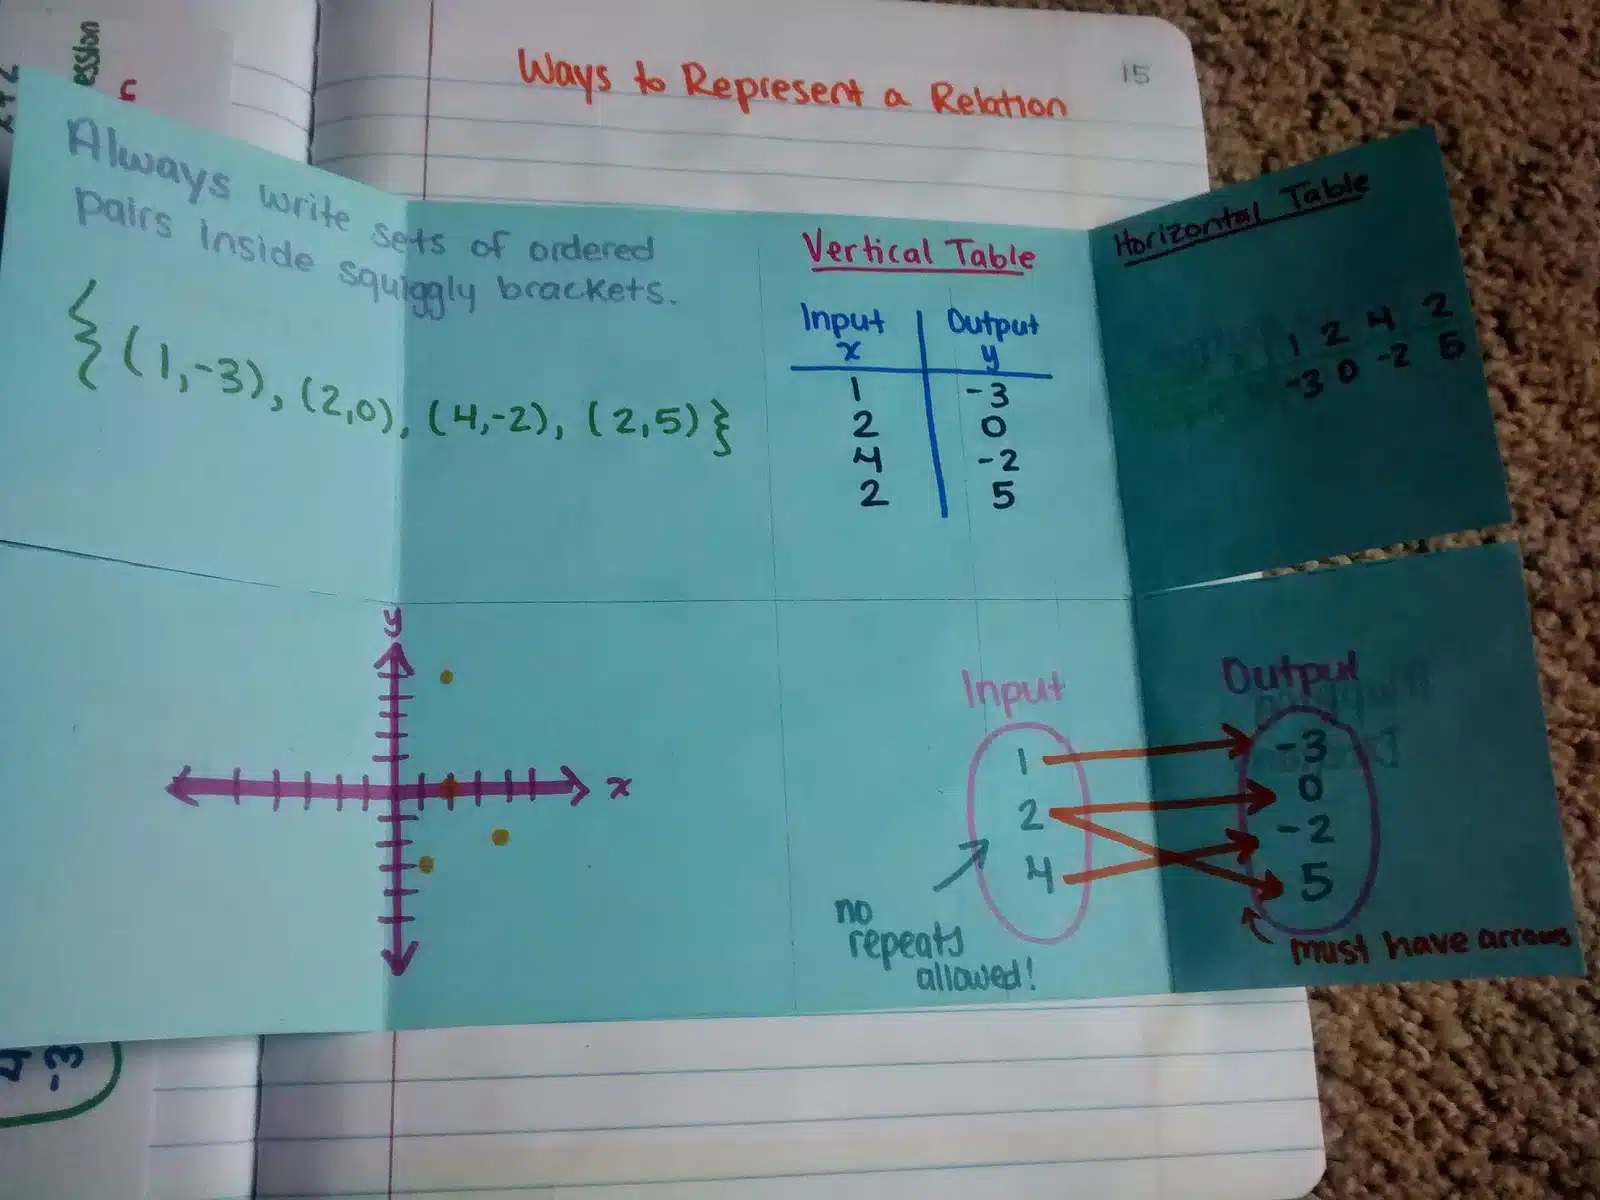 Ways to Represent a Relation
15
ession
Always write sets of ordered
pairs inside squiggly brackets.
{(1,-3), (2,0), (4,-2), (2,5)}
Vertical Table
Input | Output
x | y
1 | -3
2 | 0
4 | -2
2 | 5
Horizontal Table
1 2 4 2
-3 0 -2 5
y
x
Input
1
2
4
no
repeats
allowed!
Output
-3
0
-2
5
must have arrows
4
-3